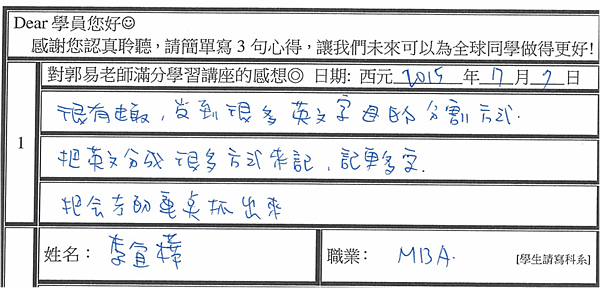 Dear 學員您好☺
感謝您認真聆聽，請簡單寫 3 句心得，讓我們未來可以為全球同學做得更好!
對郭易老師滿分學習講座的感想◎ 日期: 西元 2015 年 7 月 7 日
1
很有趣，學到很多英文字母的分割方式.
把英文分成很多方式來記，記更多字.
把会考的重点抓出來
姓名： 李宜樺
職業： MBA. [學生請寫科系]